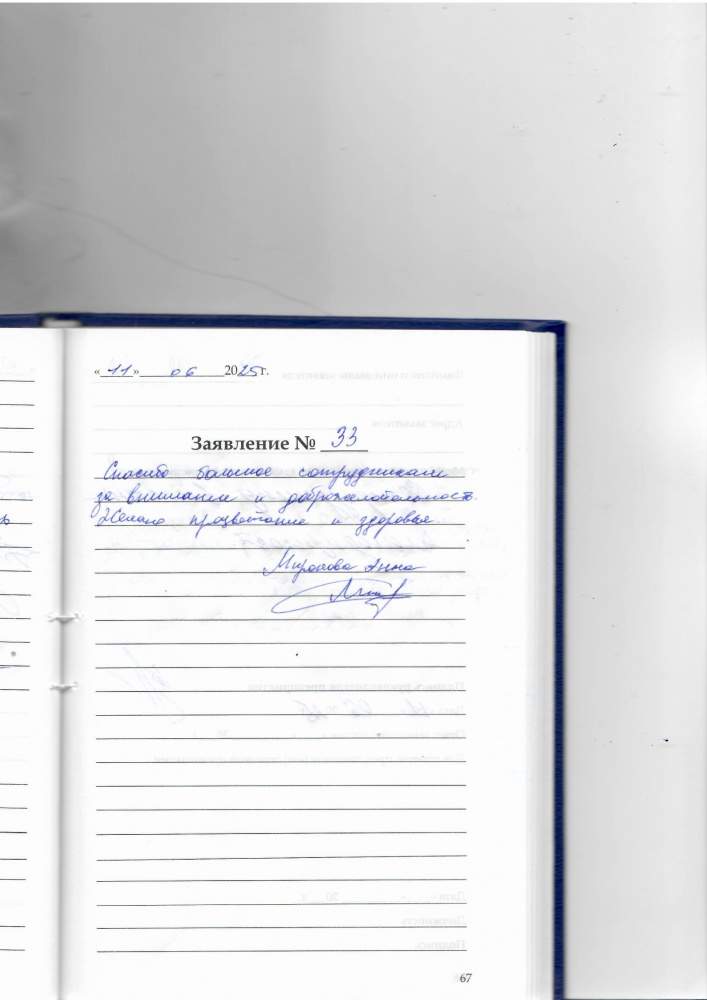 «11» 06 2025г.
Заявление № 33
Спасибо большое сотрудникам
за внимание и доброжелательность.
Желаю процветание и здоровья.
Миронова Анна
67